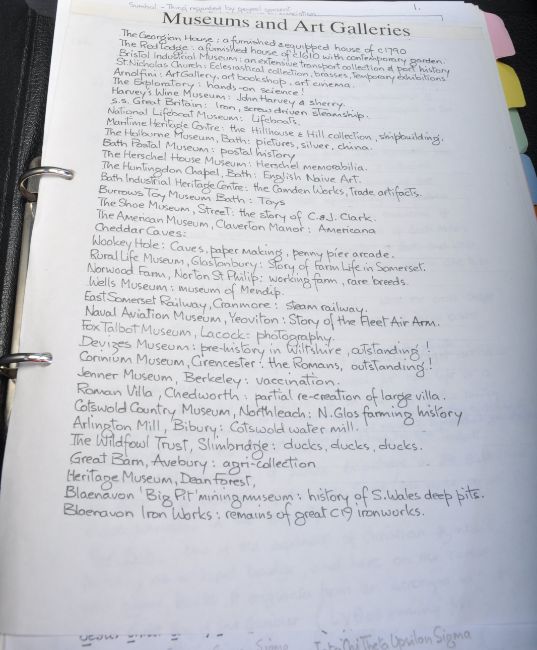 Symbol - Thing regarded by general consent
1.
Museums and Art Galleries
The Georgian House : a furnished & equipped house of c1790
The Red Lodge : a furnished house of c1610 with contemporary garden.
Bristol Industrial Museum : an extensive transport collection & port history
St. Nicholas Church : Eclesiastical collection, brasses, temporary exhibitions
Arnolfini : Art Gallery, art bookshop, art cinema.
The Exploratory : hands-on science!
Harvey's Wine Museum : John Harvey & sherry.
s.s. Great Britain : Iron, screw driven steamship.
National Lifeboat Museum : Lifeboats.
Maritime Heritage Centre : the Hillhouse & Hill collection, shipbuilding.
The Holburne Museum, Bath : pictures, silver, china.
Bath Postal Museum : postal history
The Herschel House Museum : Herschel memorabilia.
The Huntingdon Chapel, Bath : English Naive Art.
Bath Industrial Heritage Centre : the Camden Works, Trade artifacts.
Burrows Toy Museum Bath : Toys
The Shoe Museum, Street : the story of C.&J. Clark.
The American Museum, Claverton Manor : Americana
Cheddar Caves :
Wookey Hole : Caves, paper making, penny pier arcade.
Rural Life Museum, Glastonbury : Story of Farm Life in Somerset.
Norwood Farm, Norton St Philip : working farm, rare breeds.
Wells Museum : museum of Mendip.
East Somerset Railway, Cranmore : steam railway.
Naval Aviation Museum, Yeovilton : Story of the Fleet Air Arm.
Fox Talbot Museum, Lacock : photography.
Devizes Museum : pre-history in Wiltshire, outstanding!
Corinium Museum, Cirencester : the Romans, outstanding!
Jenner Museum, Berkeley : vaccination.
Roman Villa, Chedworth : partial re-creation of large villa.
Cotswold Country Museum, Northleach : N. Glos farming history
Arlington Mill, Bibury : Cotswold water mill.
The Wildfowl Trust, Slimbridge : ducks, ducks, ducks.
Great Barn, Avebury : agri-collection
Heritage Museum, Dean forest,
Blaenavon 'Big Pit' mining museum : history of S. Wales deep pits.
Blaenavon Iron Works : remains of great C19 ironworks.
Theta Upsilon Sigma